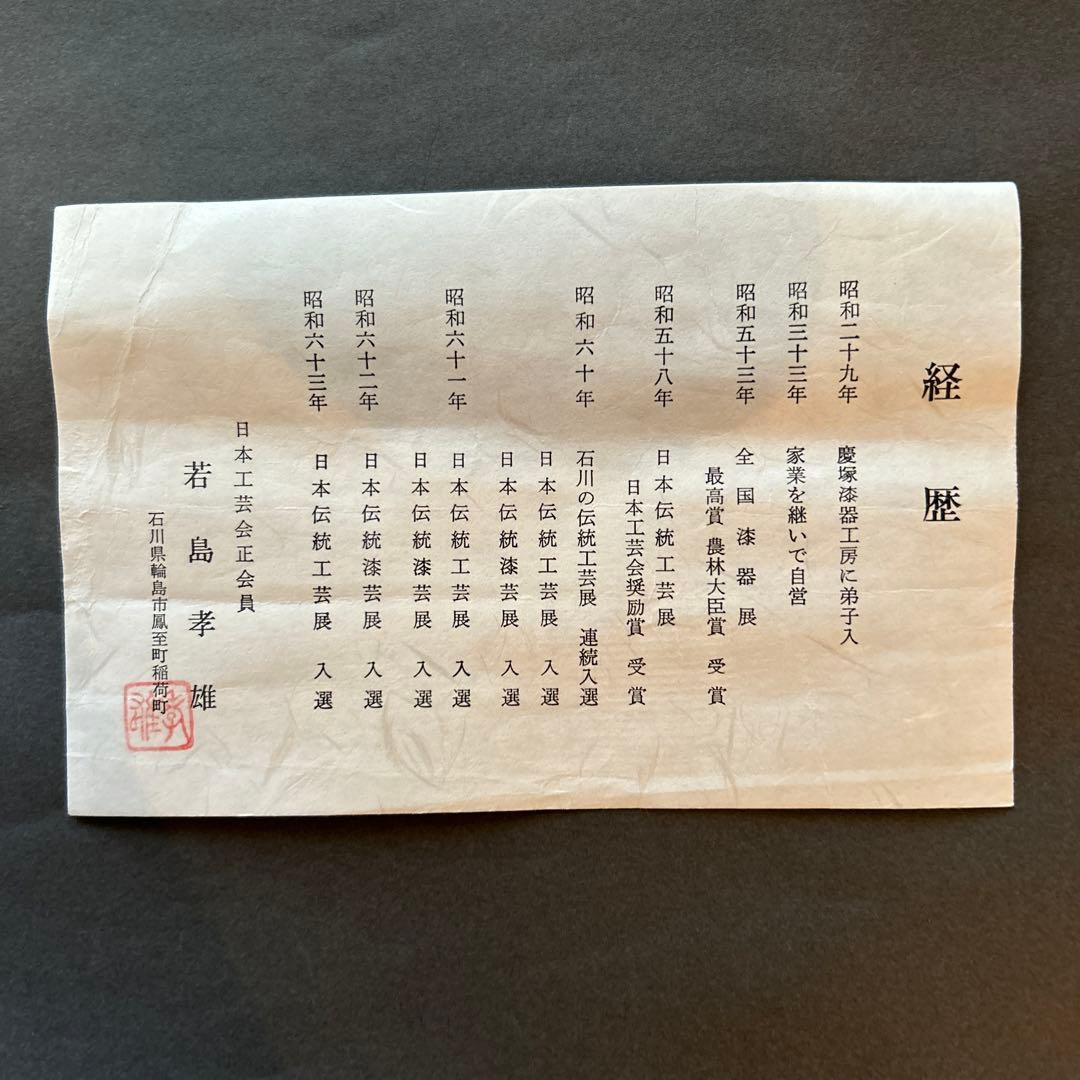 経歴
昭和二十九年 慶塚漆器工房に弟子入
昭和三十三年 家業を継いで自営
昭和五十三年 全国漆器展
最高賞 農林大臣賞 受賞
昭和五十八年 日本伝統工芸展
日本工芸会奨励賞 受賞
昭和六十年 石川の伝統工芸展 連続入選
日本伝統工芸展 入選
日本伝統漆芸展 入選
昭和六十一年 日本伝統工芸展 入選
日本伝統漆芸展 入選
昭和六十二年 日本伝統漆芸展 入選
昭和六十三年 日本伝統工芸展 入選
日本工芸会正会員
若島孝雄
石川県輪島市鳳至町稲荷町
孝雄